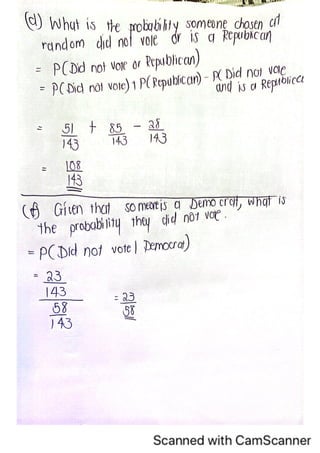 (d) What is the probability someone chosen at
random did not vote or is a Republican
= P(Did not vote or Republican)
= P(Did not vote) + P(Republican) - P( Did not vote
and is a Republican
= 51/143 + 85/143 - 28/143
= 108/143
(f) Given that someone is a Democrat, what is
the probability they did not vote.
= P(Did not vote | Democrat)
= 23/143 / 58/143 = 23/58
Scanned with CamScanner